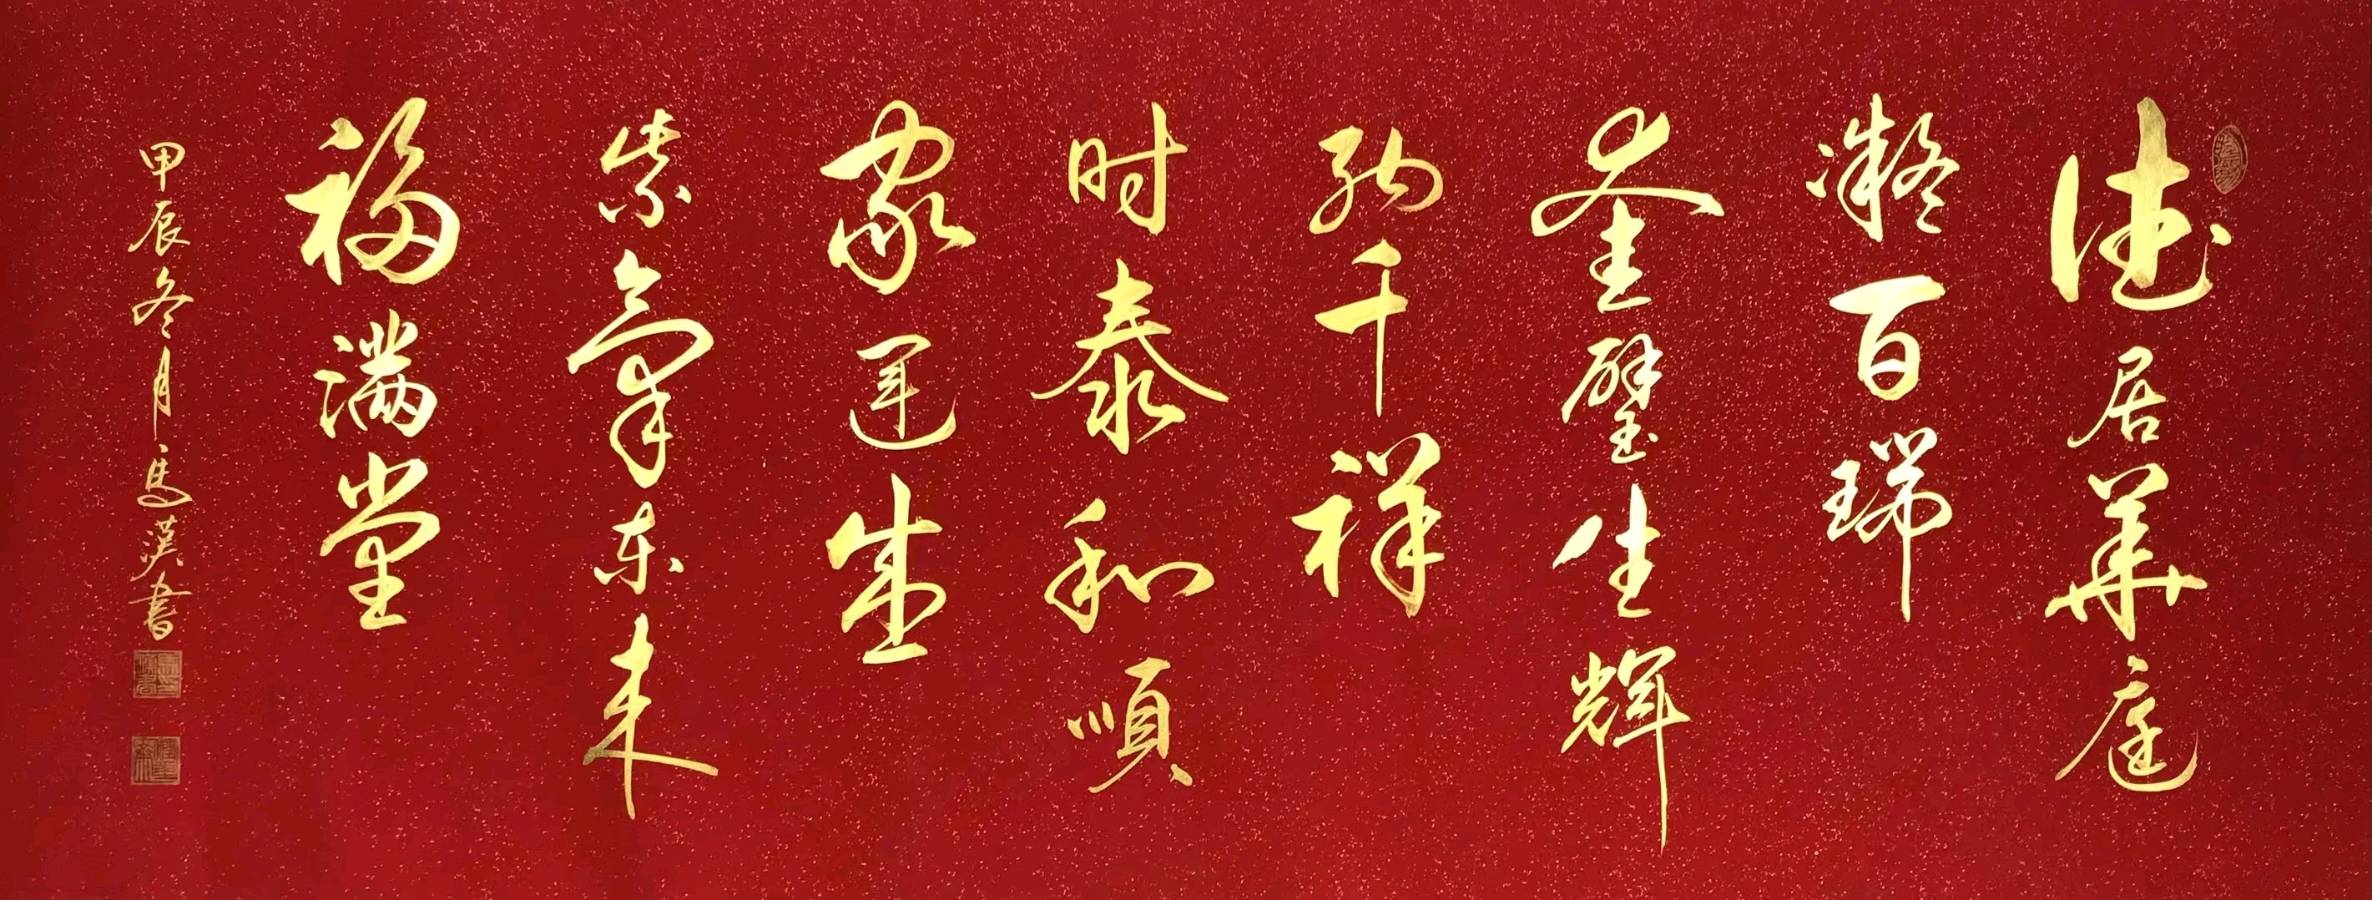 德居華庭
凝百瑞
奎璧生輝
纳千祥
时泰和順
家運盛
紫氣东来
福满堂
甲辰冬月馬漢書